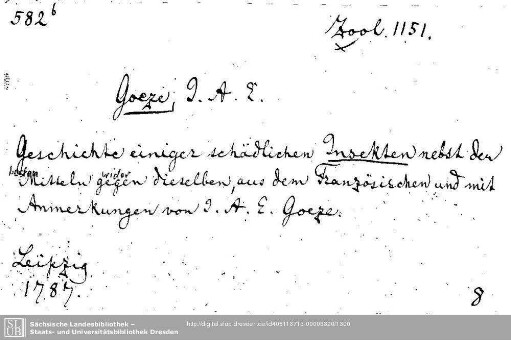 582 b
Zool. 1151.
Goeze, J. A. E.
Geschichte einiger schädlichen Insekten nebst den
besten wider
Mitteln gegen dieselben, aus dem Französischen und mit
Anmerkungen von J. A. E. Goeze.
Leipzig
1787.
8
Sächsische Landesbibliothek –
Staats- und Universitätsbibliothek Dresden